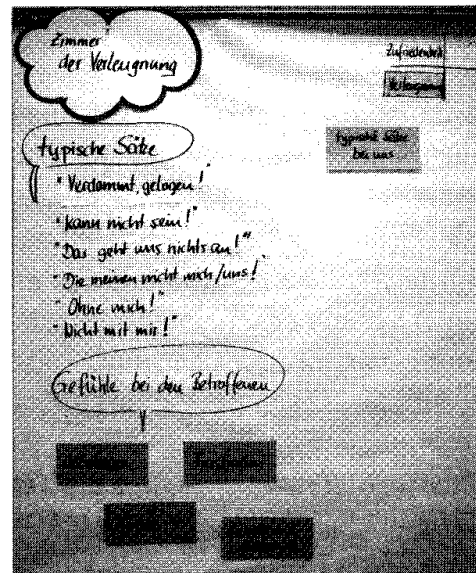 Zimmer
der Verleugnung
Zufriedenheit
Verleugnung
typische Sätze
bei uns
typische Sätze
"Verdammt, gelogen!"
"Kann nicht sein!"
"Das geht uns nichts an!"
"Die meinen nicht mich/uns!"
"Ohne mich!"
"Nicht mit mir!"
Gefühle bei den Betroffenen